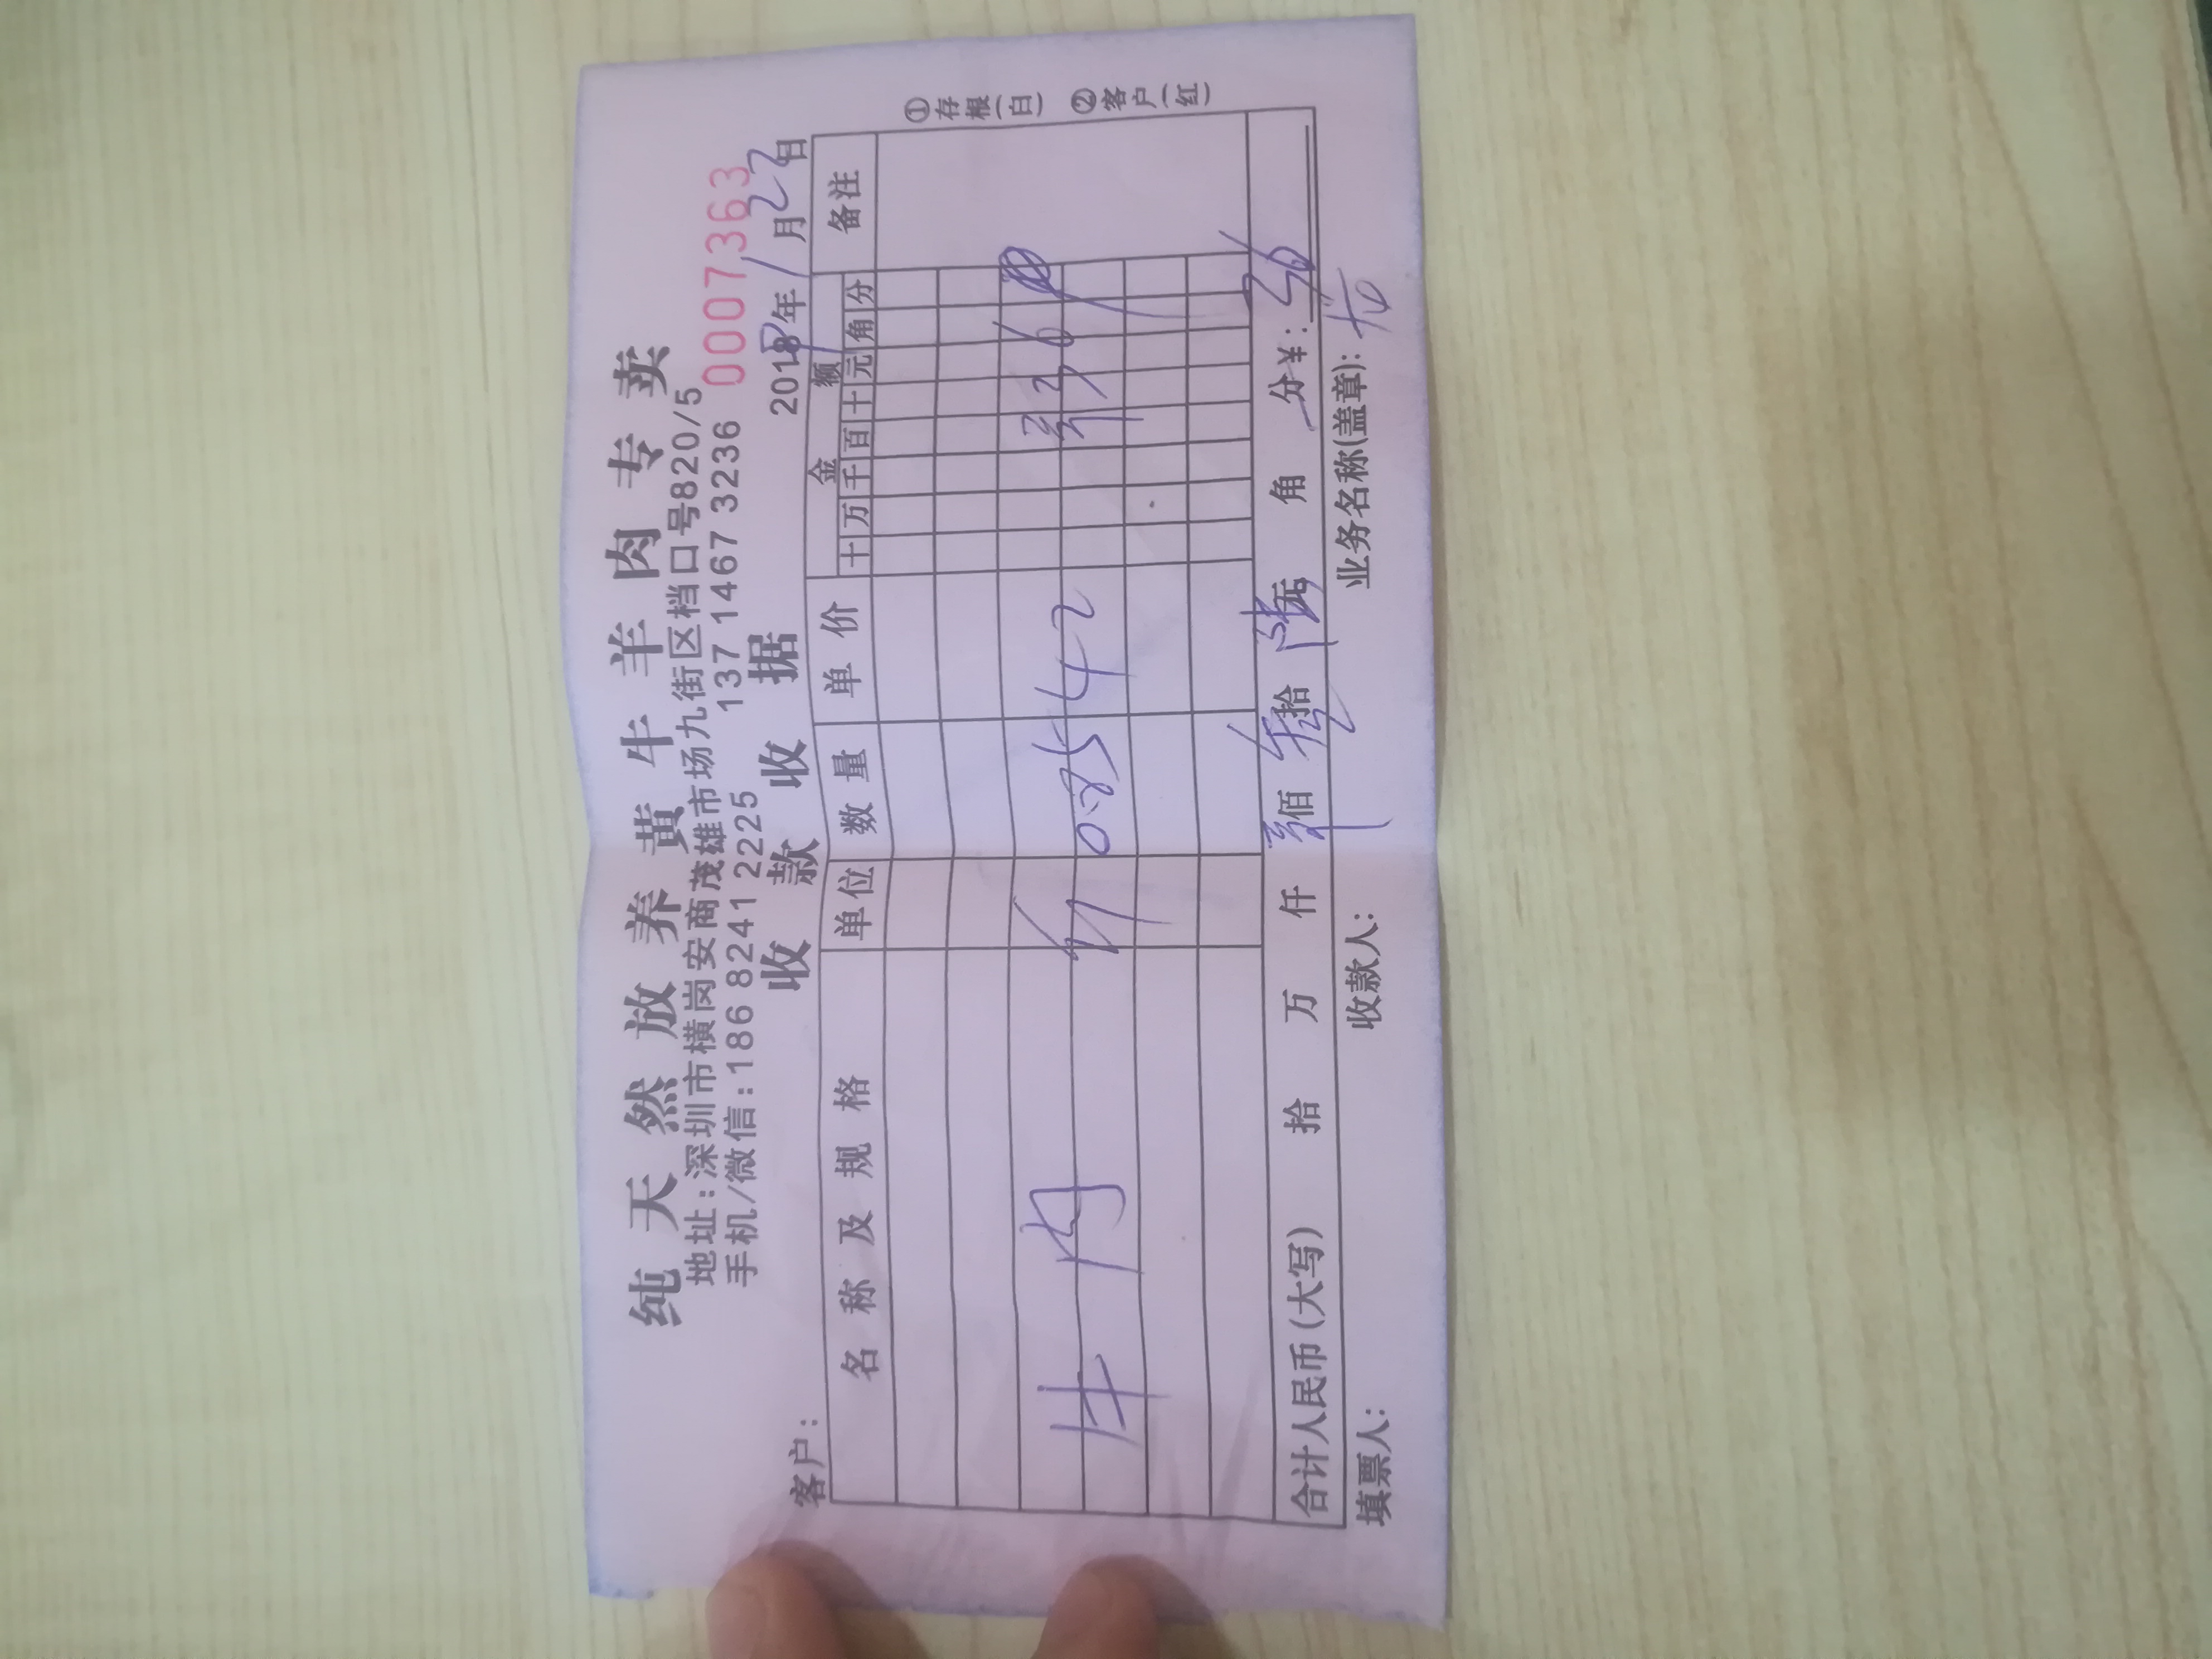 纯天然放养黄牛羊肉专卖
地址:深圳市横岗安商茂雄市场九街区档口号820/5
手机/微信:186 8241 2225 137 1467 3236 0007363
收款收据
客户: 2019年1月22日
名称及规格 单位 数量 单价 金额 备注
十 万 千 百 十 元 角 分
牛肉 斤 0.85 42 36
合计人民币(大写) 拾 万 仟 佰 叁拾 陆元 角 分 ¥:36
填票人: 收款人: 业务名称(盖章):
①存根(白) ②客户(红)